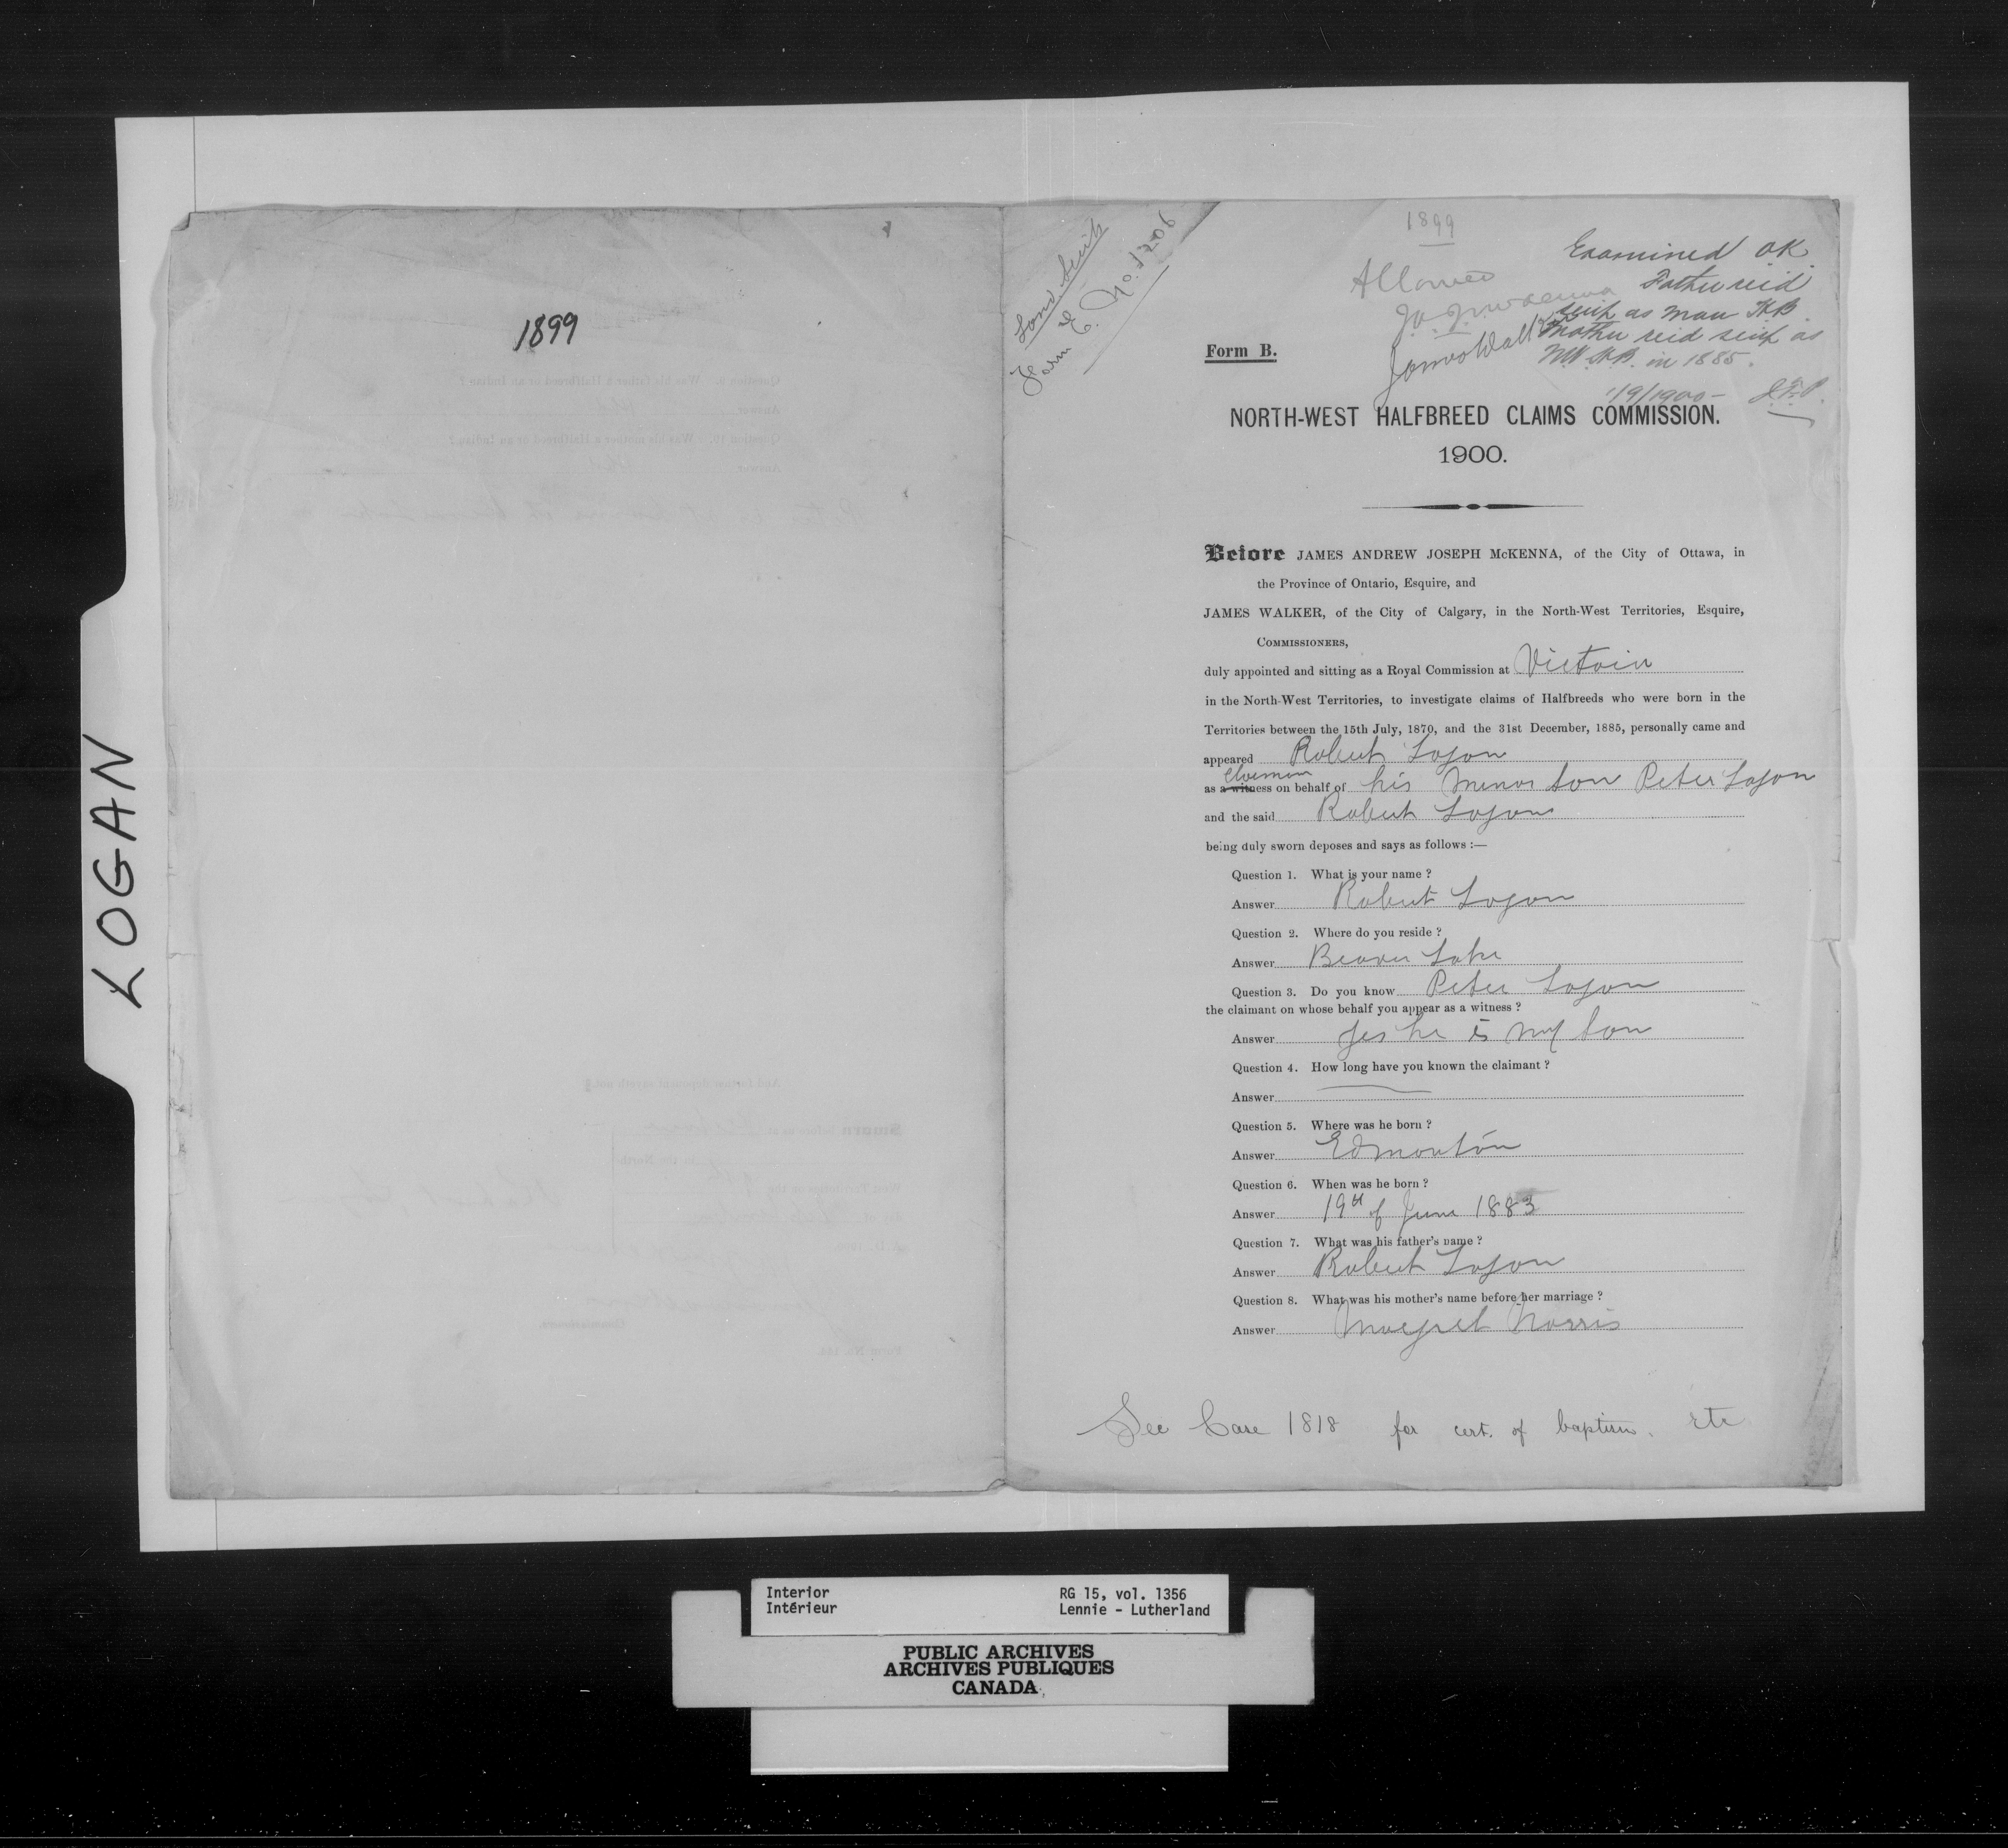 LOGAN
1899
Land Scrip
Form E. No. 1206
1899
Allowed
J. A. J. McKenna
James Walker
Examined OK.
Father recd
scrip as Man HB.
Mother recd scrip as
N.W. H.B. in 1885.
1/9/1900 -
Form B.
NORTH-WEST HALFBREED CLAIMS COMMISSION.
1900.
Before JAMES ANDREW JOSEPH McKENNA, of the City of Ottawa, in
the Province of Ontario, Esquire, and
JAMES WALKER, of the City of Calgary, in the North-West Territories, Esquire,
COMMISSIONERS,
duly appointed and sitting as a Royal Commission at Victoria
in the North-West Territories, to investigate claims of Halfbreeds who were born in the
Territories between the 15th July, 1870, and the 31st December, 1885, personally came and
appeared Robert Logan
as a witness on behalf of his minor son Peter Logan
and the said Robert Logan
being duly sworn deposes and says as follows :—
Question 1. What is your name ?
Answer Robert Logan
Question 2. Where do you reside ?
Answer Beaver Lake
Question 3. Do you know Peter Logan
the claimant on whose behalf you appear as a witness ?
Answer Yes he is my son
Question 4. How long have you known the claimant ?
Answer
Question 5. Where was he born ?
Answer Edmonton
Question 6. When was he born ?
Answer 19th of June 1883
Question 7. What was his father's name ?
Answer Robert Logan
Question 8. What was his mother's name before her marriage ?
Answer Margret Norris
See Case 1818 for cert. of baptism. etc
Interior
Intérieur
RG 15, vol. 1356
Lennie - Lutherland
PUBLIC ARCHIVES
ARCHIVES PUBLIQUES
CANADA